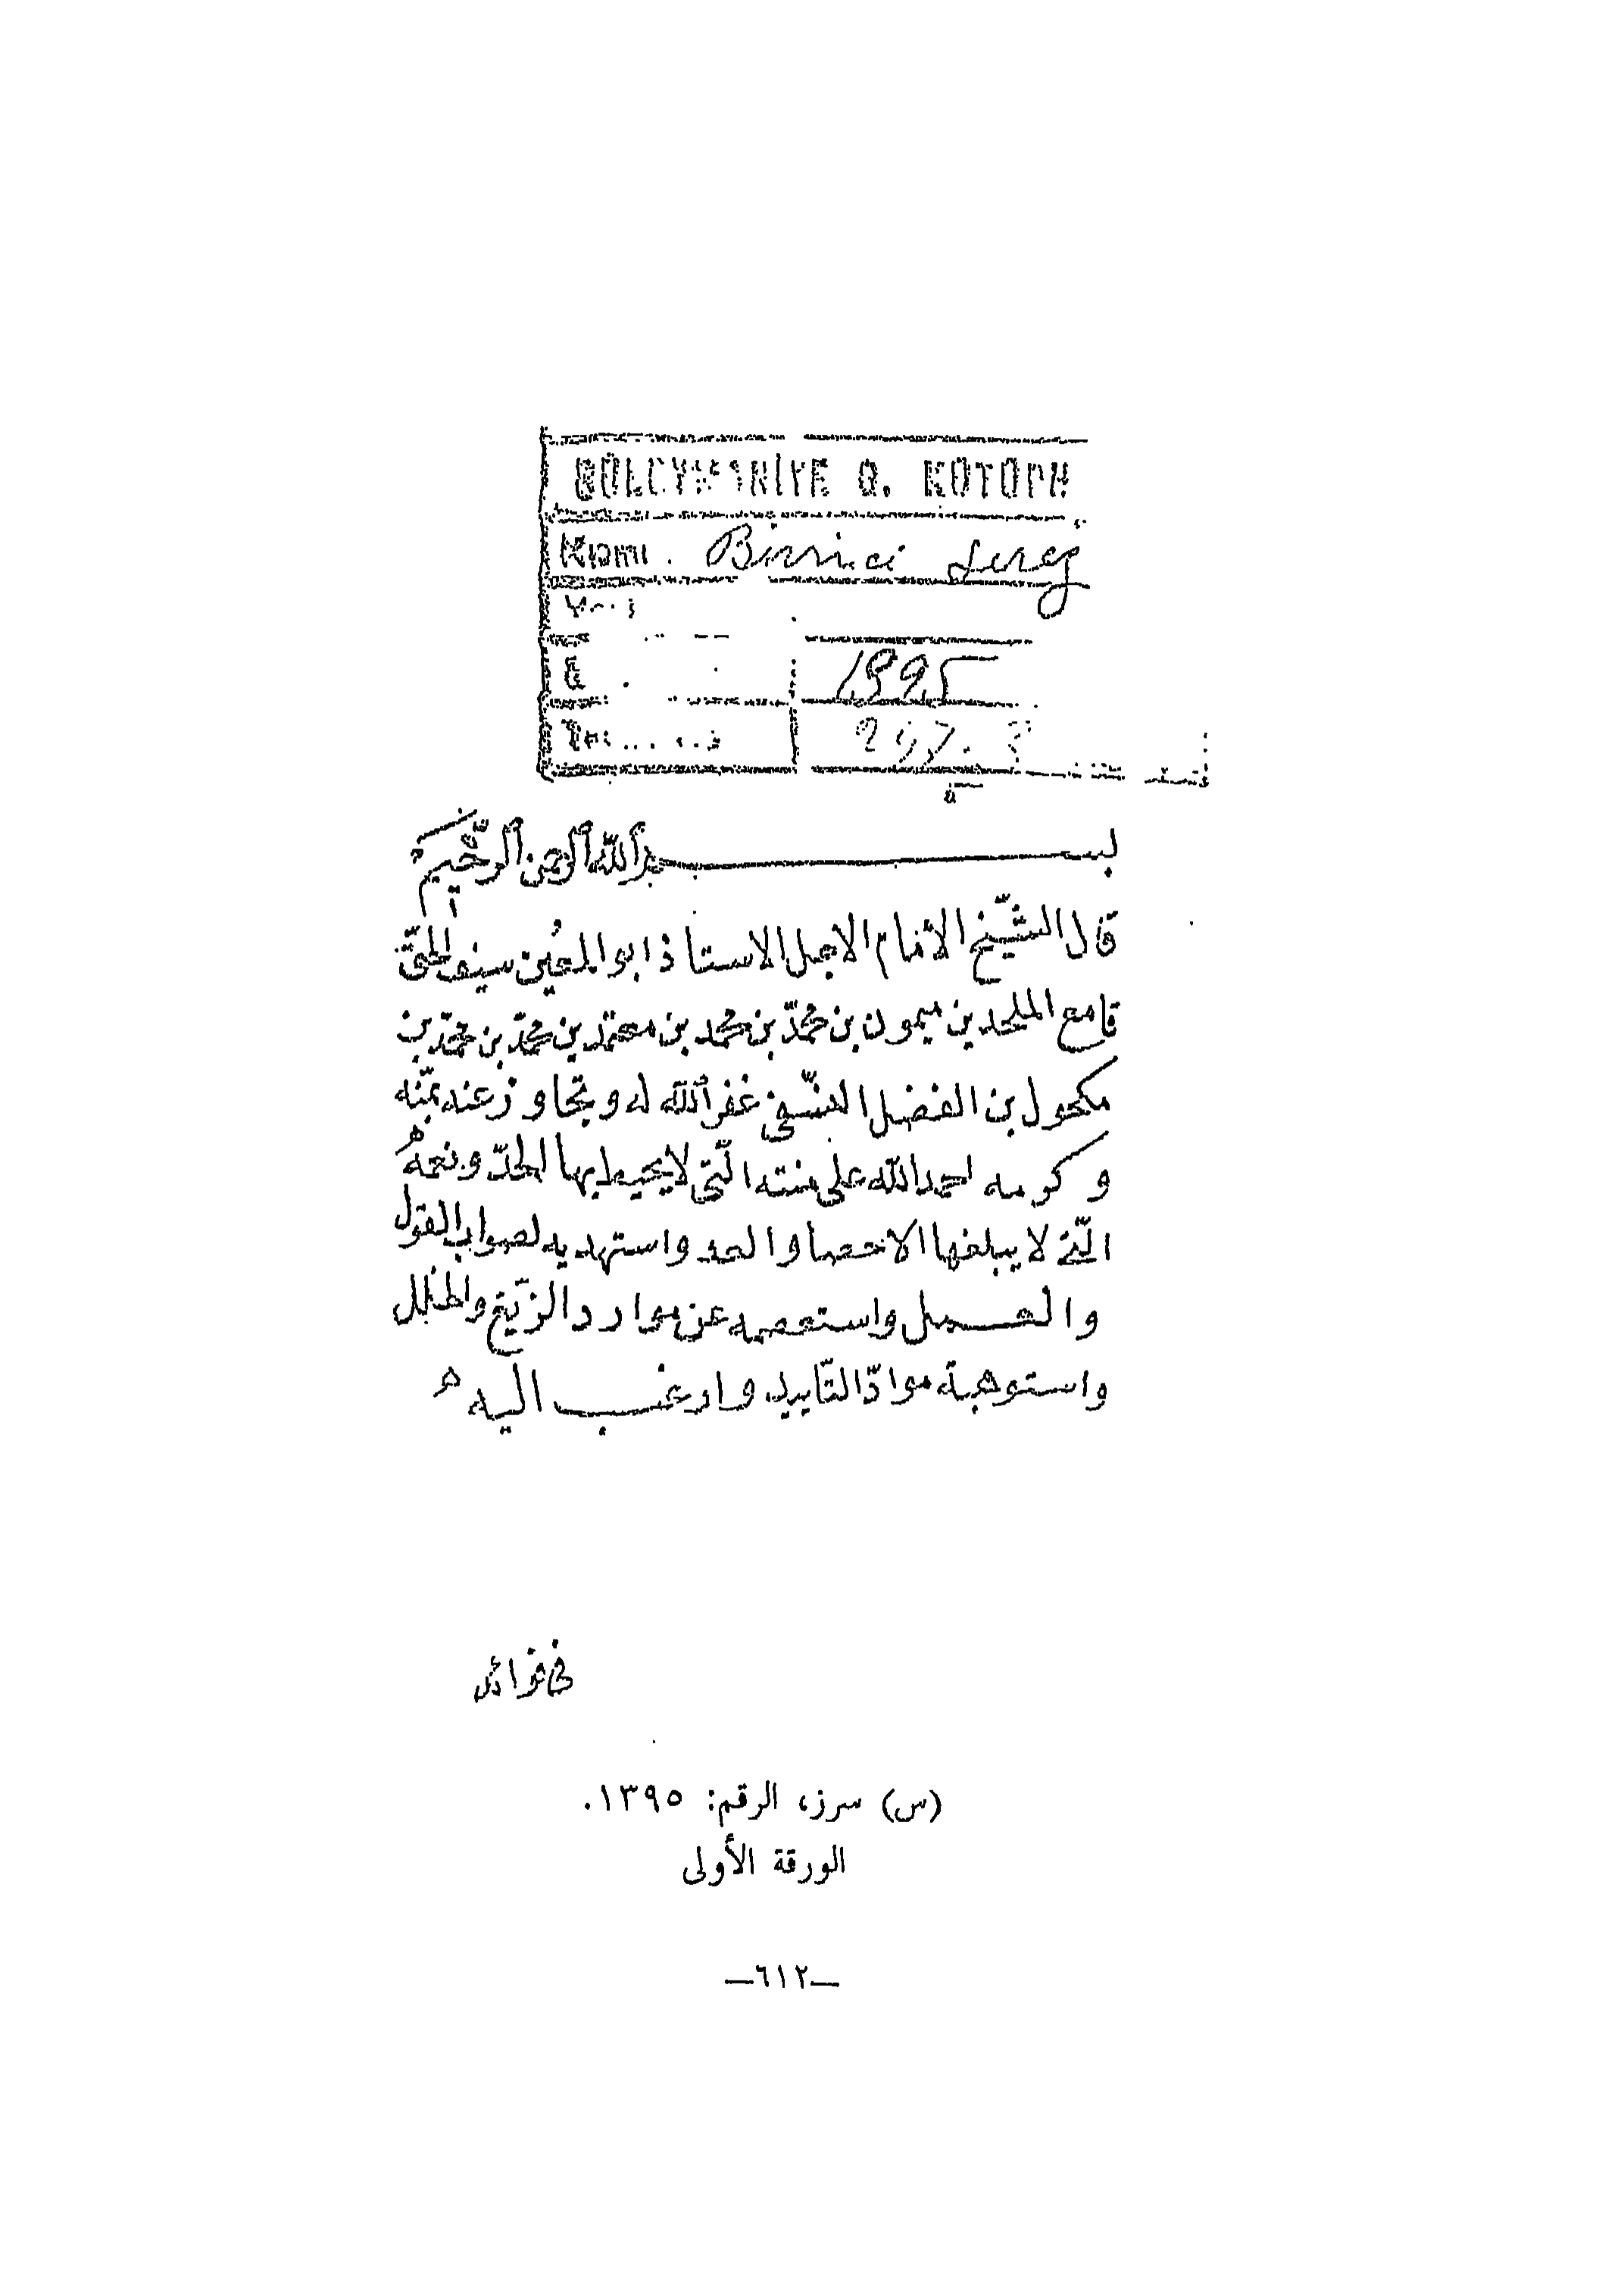 Kısmı
Birinci Serez
1395
297.3
بســـــــم الله الرحمن الرّحيم
قال الشّيخ الامام الاجل الاستاذ ابو المعين سيف الحقّ
قامع الملحدين ميمون بن محمّد بن محمد بن معتمد بن محمّد بن محمّد بن
مكحول بن الفضل النسّفى غفر الله له وتجاوز عنه بمنّه
وكرمه احمد الله على منته الّتى لا يحيط بها الحدّ ونعمه
الّتى لا يبلغها الاحصا والعد واستهديه لصواب القول
والعــمل واستعصمه عن موارد الزّيغ والخلل
واستوهبة موادّ التّاييد وارغب اليه
فى فوائد
(س) سرز، الرقم: ١٣٩٥.
الورقة الأولى
—٦١٢—